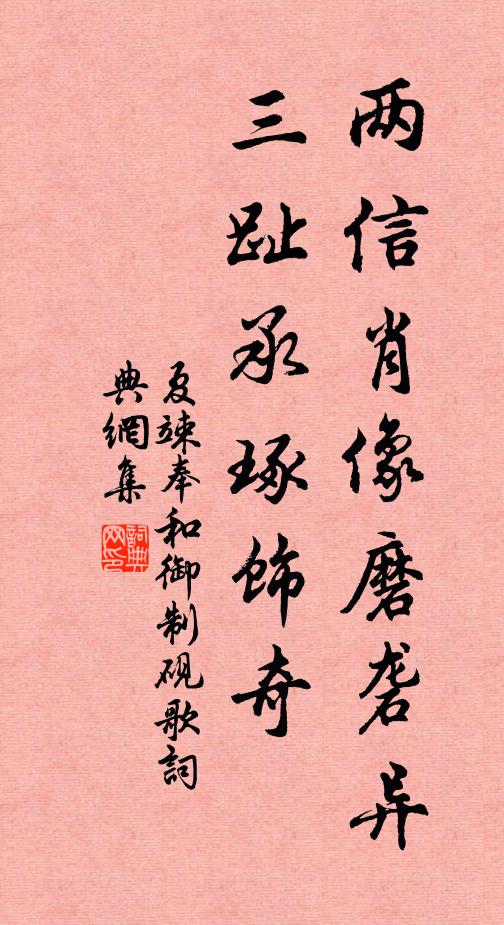 两信肖像磨砻异
三趾承琢饰奇
夏竦奉和御制砚歌詞
典網集
詞典網印